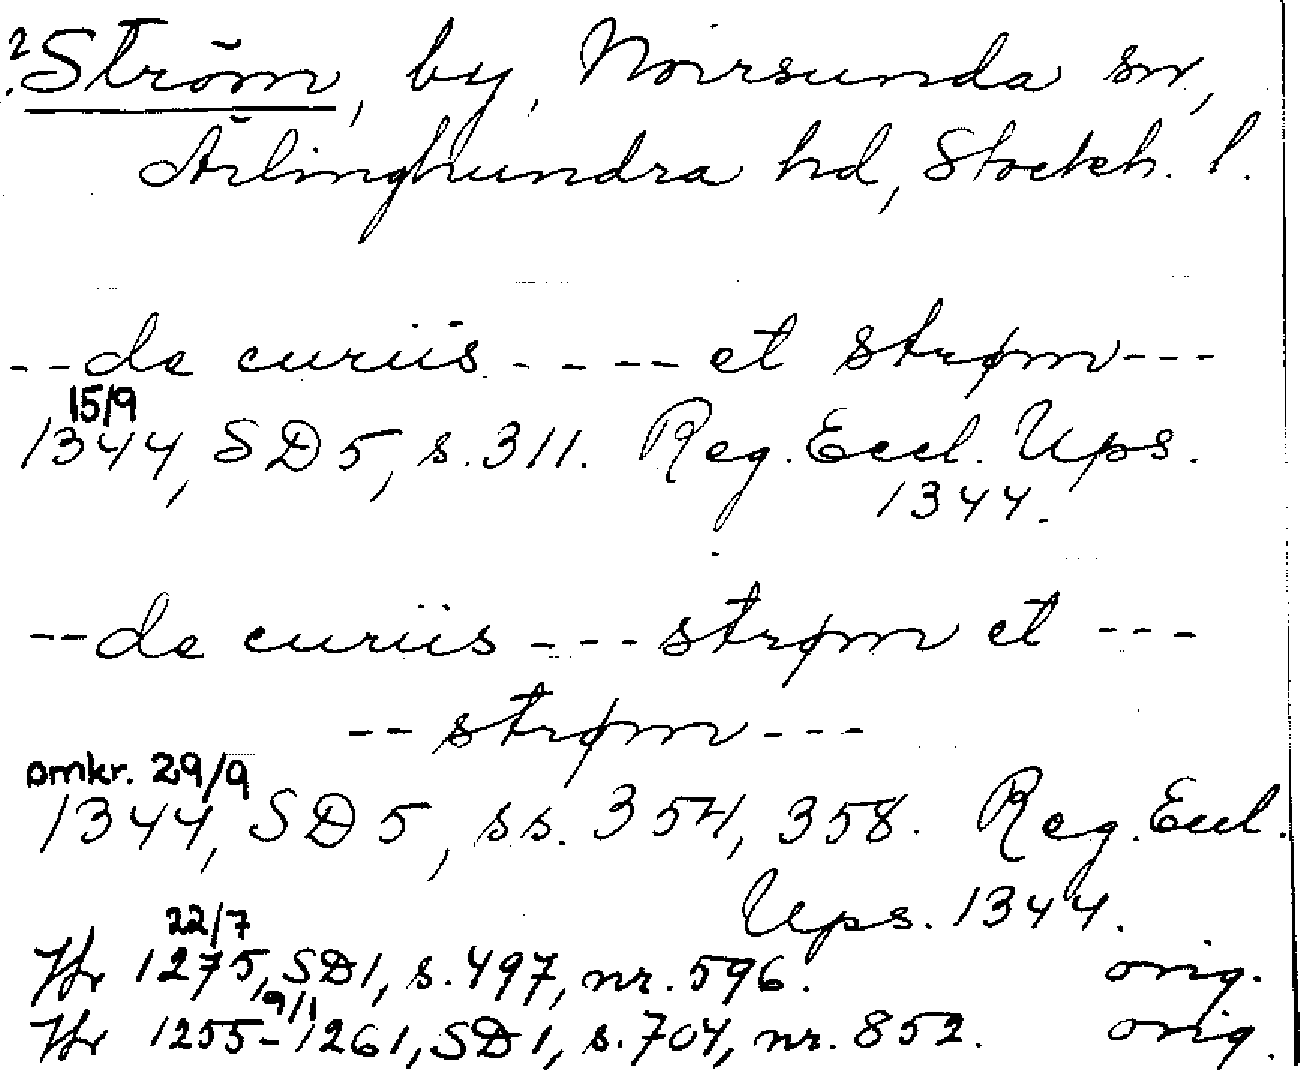 2 Ström, by, Norrsunda sn,
Ärlinghundra hd, Stockh. l.
-- de curiis ----- et strøm ---
15/9
1344, SD 5, s. 311. Reg. Eccl. Ups.
1344.
-- de curiis --- strøm et ---
-- strøm ---
omkr. 29/9
1344, SD 5, ss. 354, 358. Reg. Eccl.
Ups. 1344.
22/7
Jfr 1275, SD 1, s. 497, nr. 596. orig.
9/1
Jfr 1255-1261, SD 1, s. 704, nr. 852. orig.